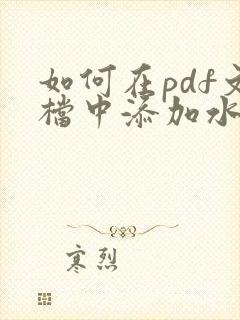 如何在pdf文
檔中添加水
寒烈